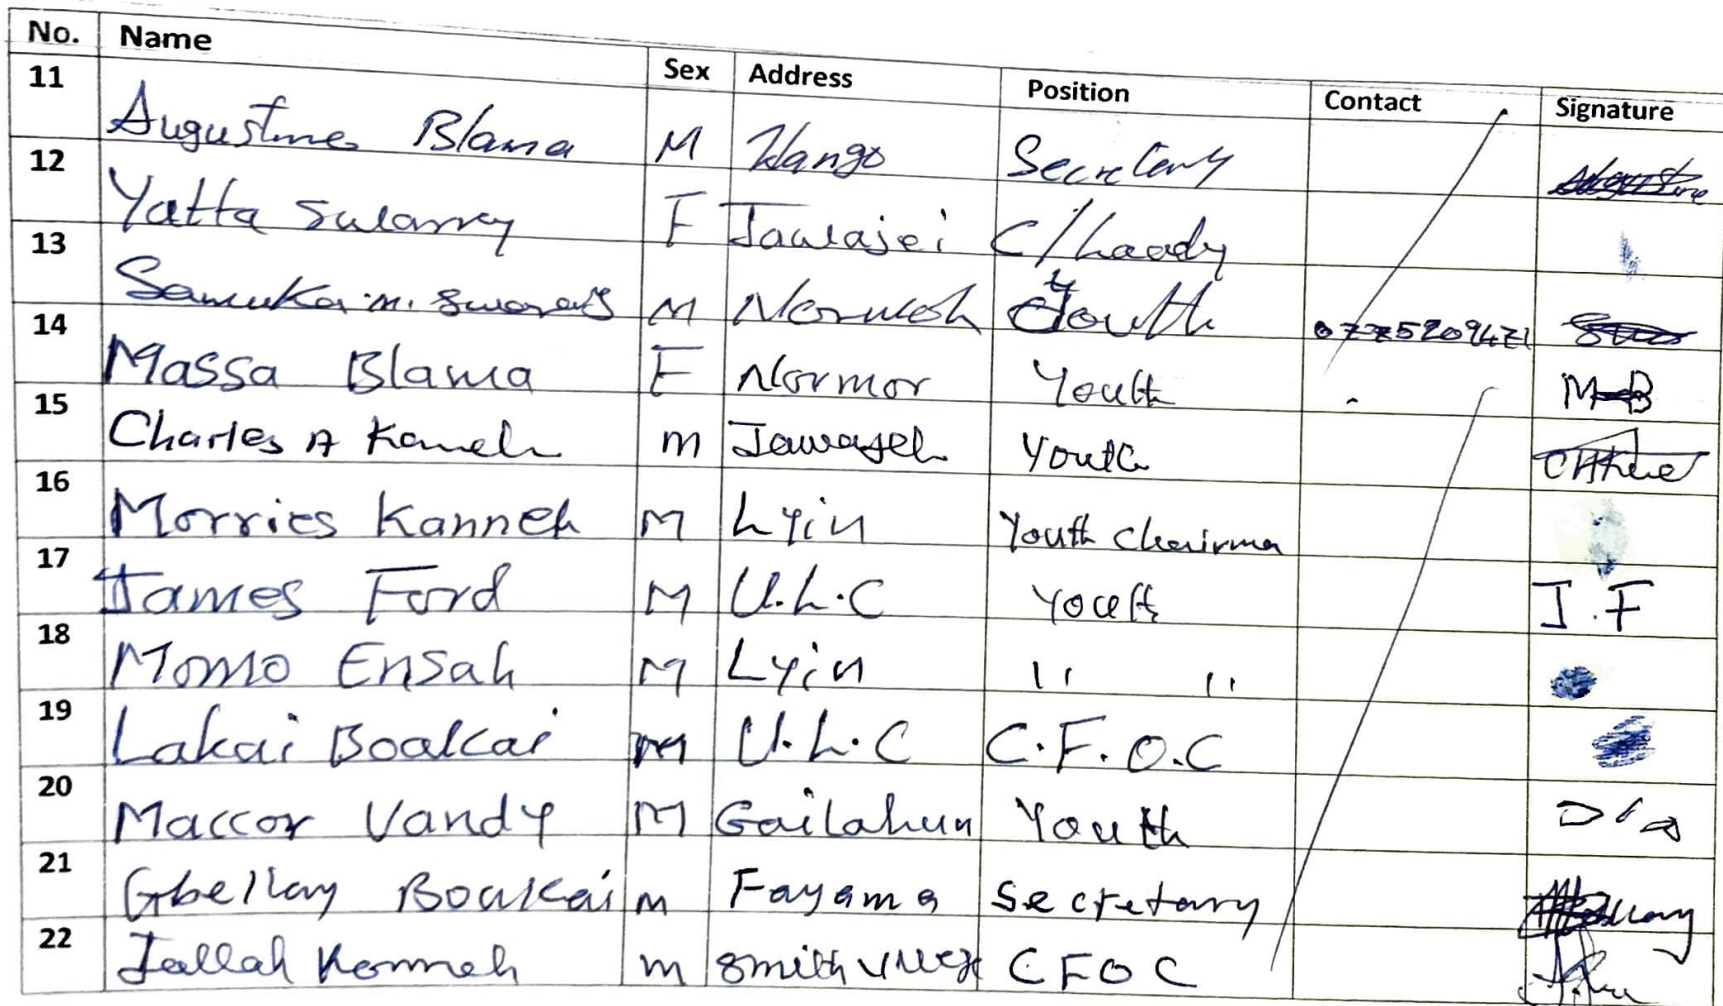 No. Name Sex Address Position Contact Signature
11 Augustine Blama M Secretary
12 Yatta F Jawajei
13 Samuka M. M Youth
14 Massa Blama F Normor Youth M-B
15 Charles A Kaneh m Jawajeh Youth
16 Morries Kanneh M Lyin Youth Chairma
17 James Ford M U.L.C Youth J.F
18 Momo Ensah M Lyin " "
19 Lakai Boakai M U.L.C C.F.O.C
20 Maccor Vandy M Gailahun Youth
21 Gbellay Boakai m Fayama Secretary
22 Jallah Konneh m Smith C F O C